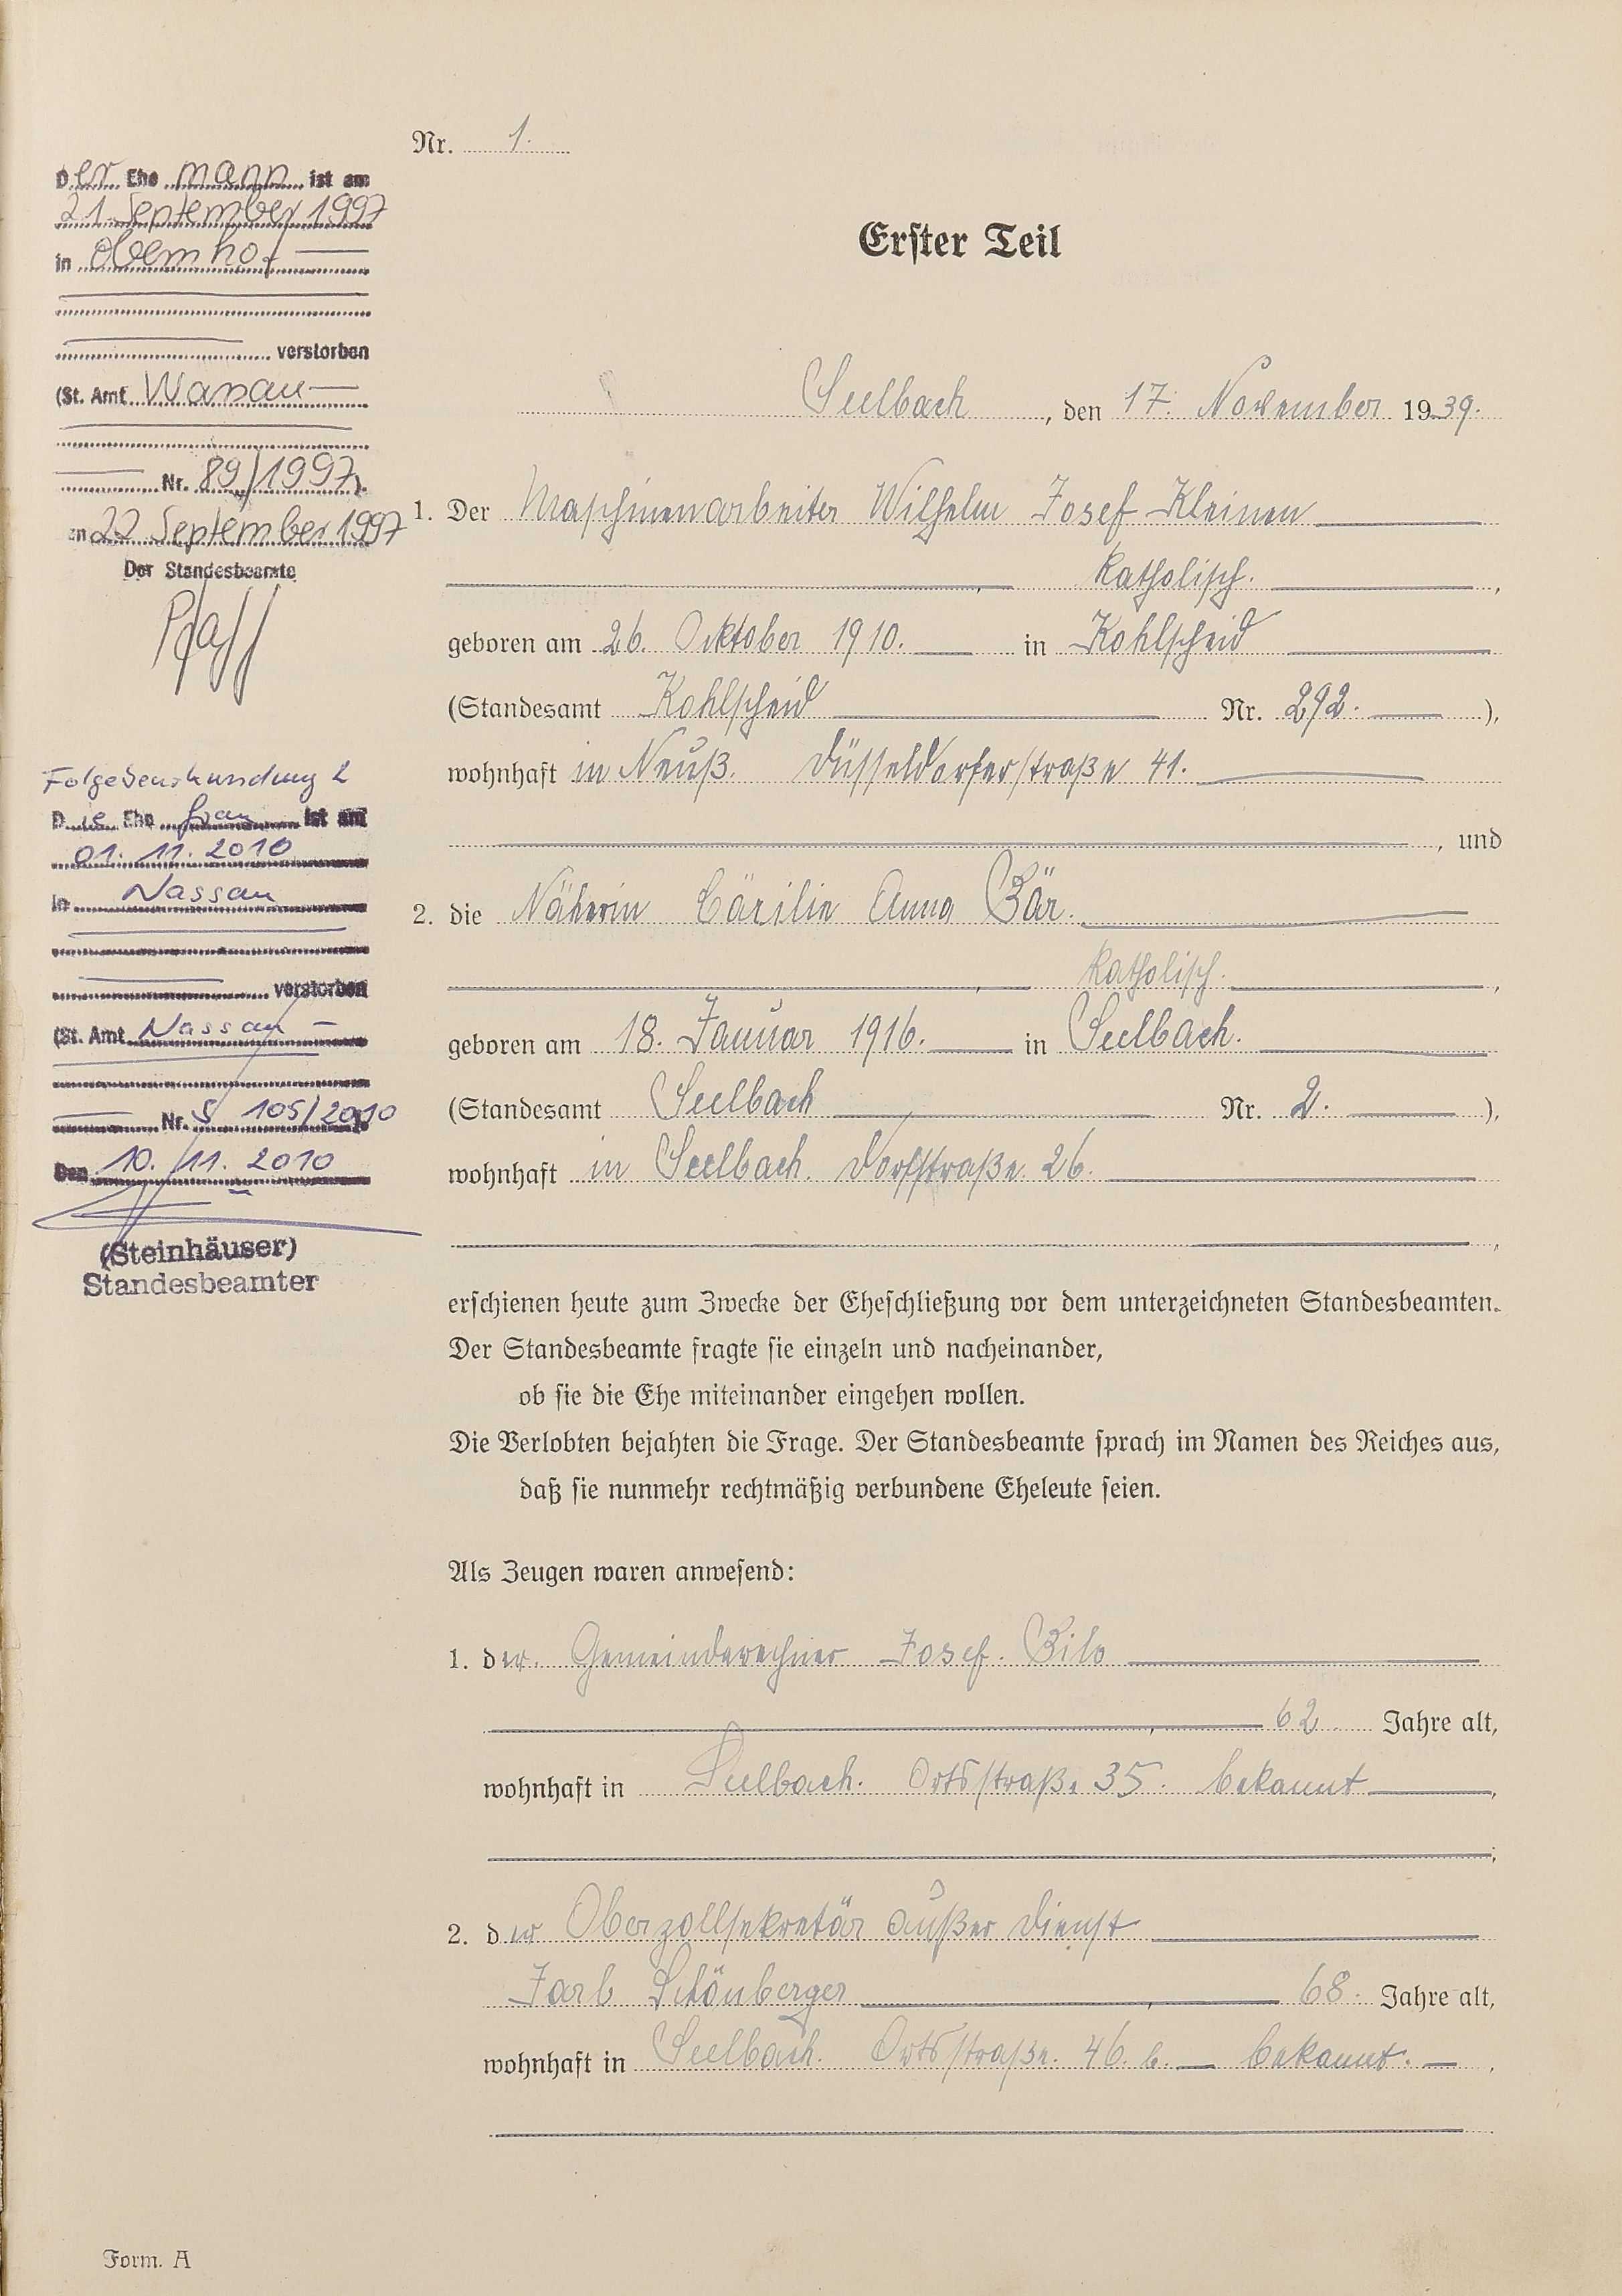 Nr. 1.
Erster Teil
Seelbach, den 17. November 1939.
1. Der Maschinenarbeiter Wilhelm Josef Kleinen
katholisch.,
geboren am 26. Oktober 1910. in Kohlscheid
(Standesamt Kohlscheid Nr. 292.),
wohnhaft in Neuß. Düsseldorferstraße 41.
, und
2. die Näherin Cäcilie Anna Bär.
katholisch.,
geboren am 18. Januar 1916. in Seelbach.
(Standesamt Seelbach Nr. 2.),
wohnhaft in Seelbach. Dorfstraße 26.
,
erschienen heute zum Zwecke der Eheschließung vor dem unterzeichneten Standesbeamten.
Der Standesbeamte fragte sie einzeln und nacheinander,
ob sie die Ehe miteinander eingehen wollen.
Die Verlobten bejahten die Frage. Der Standesbeamte sprach im Namen des Reiches aus,
daß sie nunmehr rechtmäßig verbundene Eheleute seien.
Als Zeugen waren anwesend:
1. der. Gemeinderechner Josef. Bilo
, 62 Jahre alt,
wohnhaft in Seelbach. Ortsstraße 35. bekannt,
;
2. der Oberzollsekretär außer Dienst
Schönberger, 68. Jahre alt,
wohnhaft in Seelbach. Ortsstraße. 46. b. bekannt.,
Form. A
Der Ehemann ist am
21 September 1997
in Obernhof
verstorben
(St. Amt Nassau
Nr. 89/1997).
en 22 September 1997
Der Standesbeamte
Pfaff
Folgebeurkundung 2
Die Ehefrau ist am
01. 11. 2010
in Nassau
verstorben
(St. Amt Nassau
Nr. S 105/2010
Den 10. 11. 2010
(Steinhäuser)
Standesbeamter